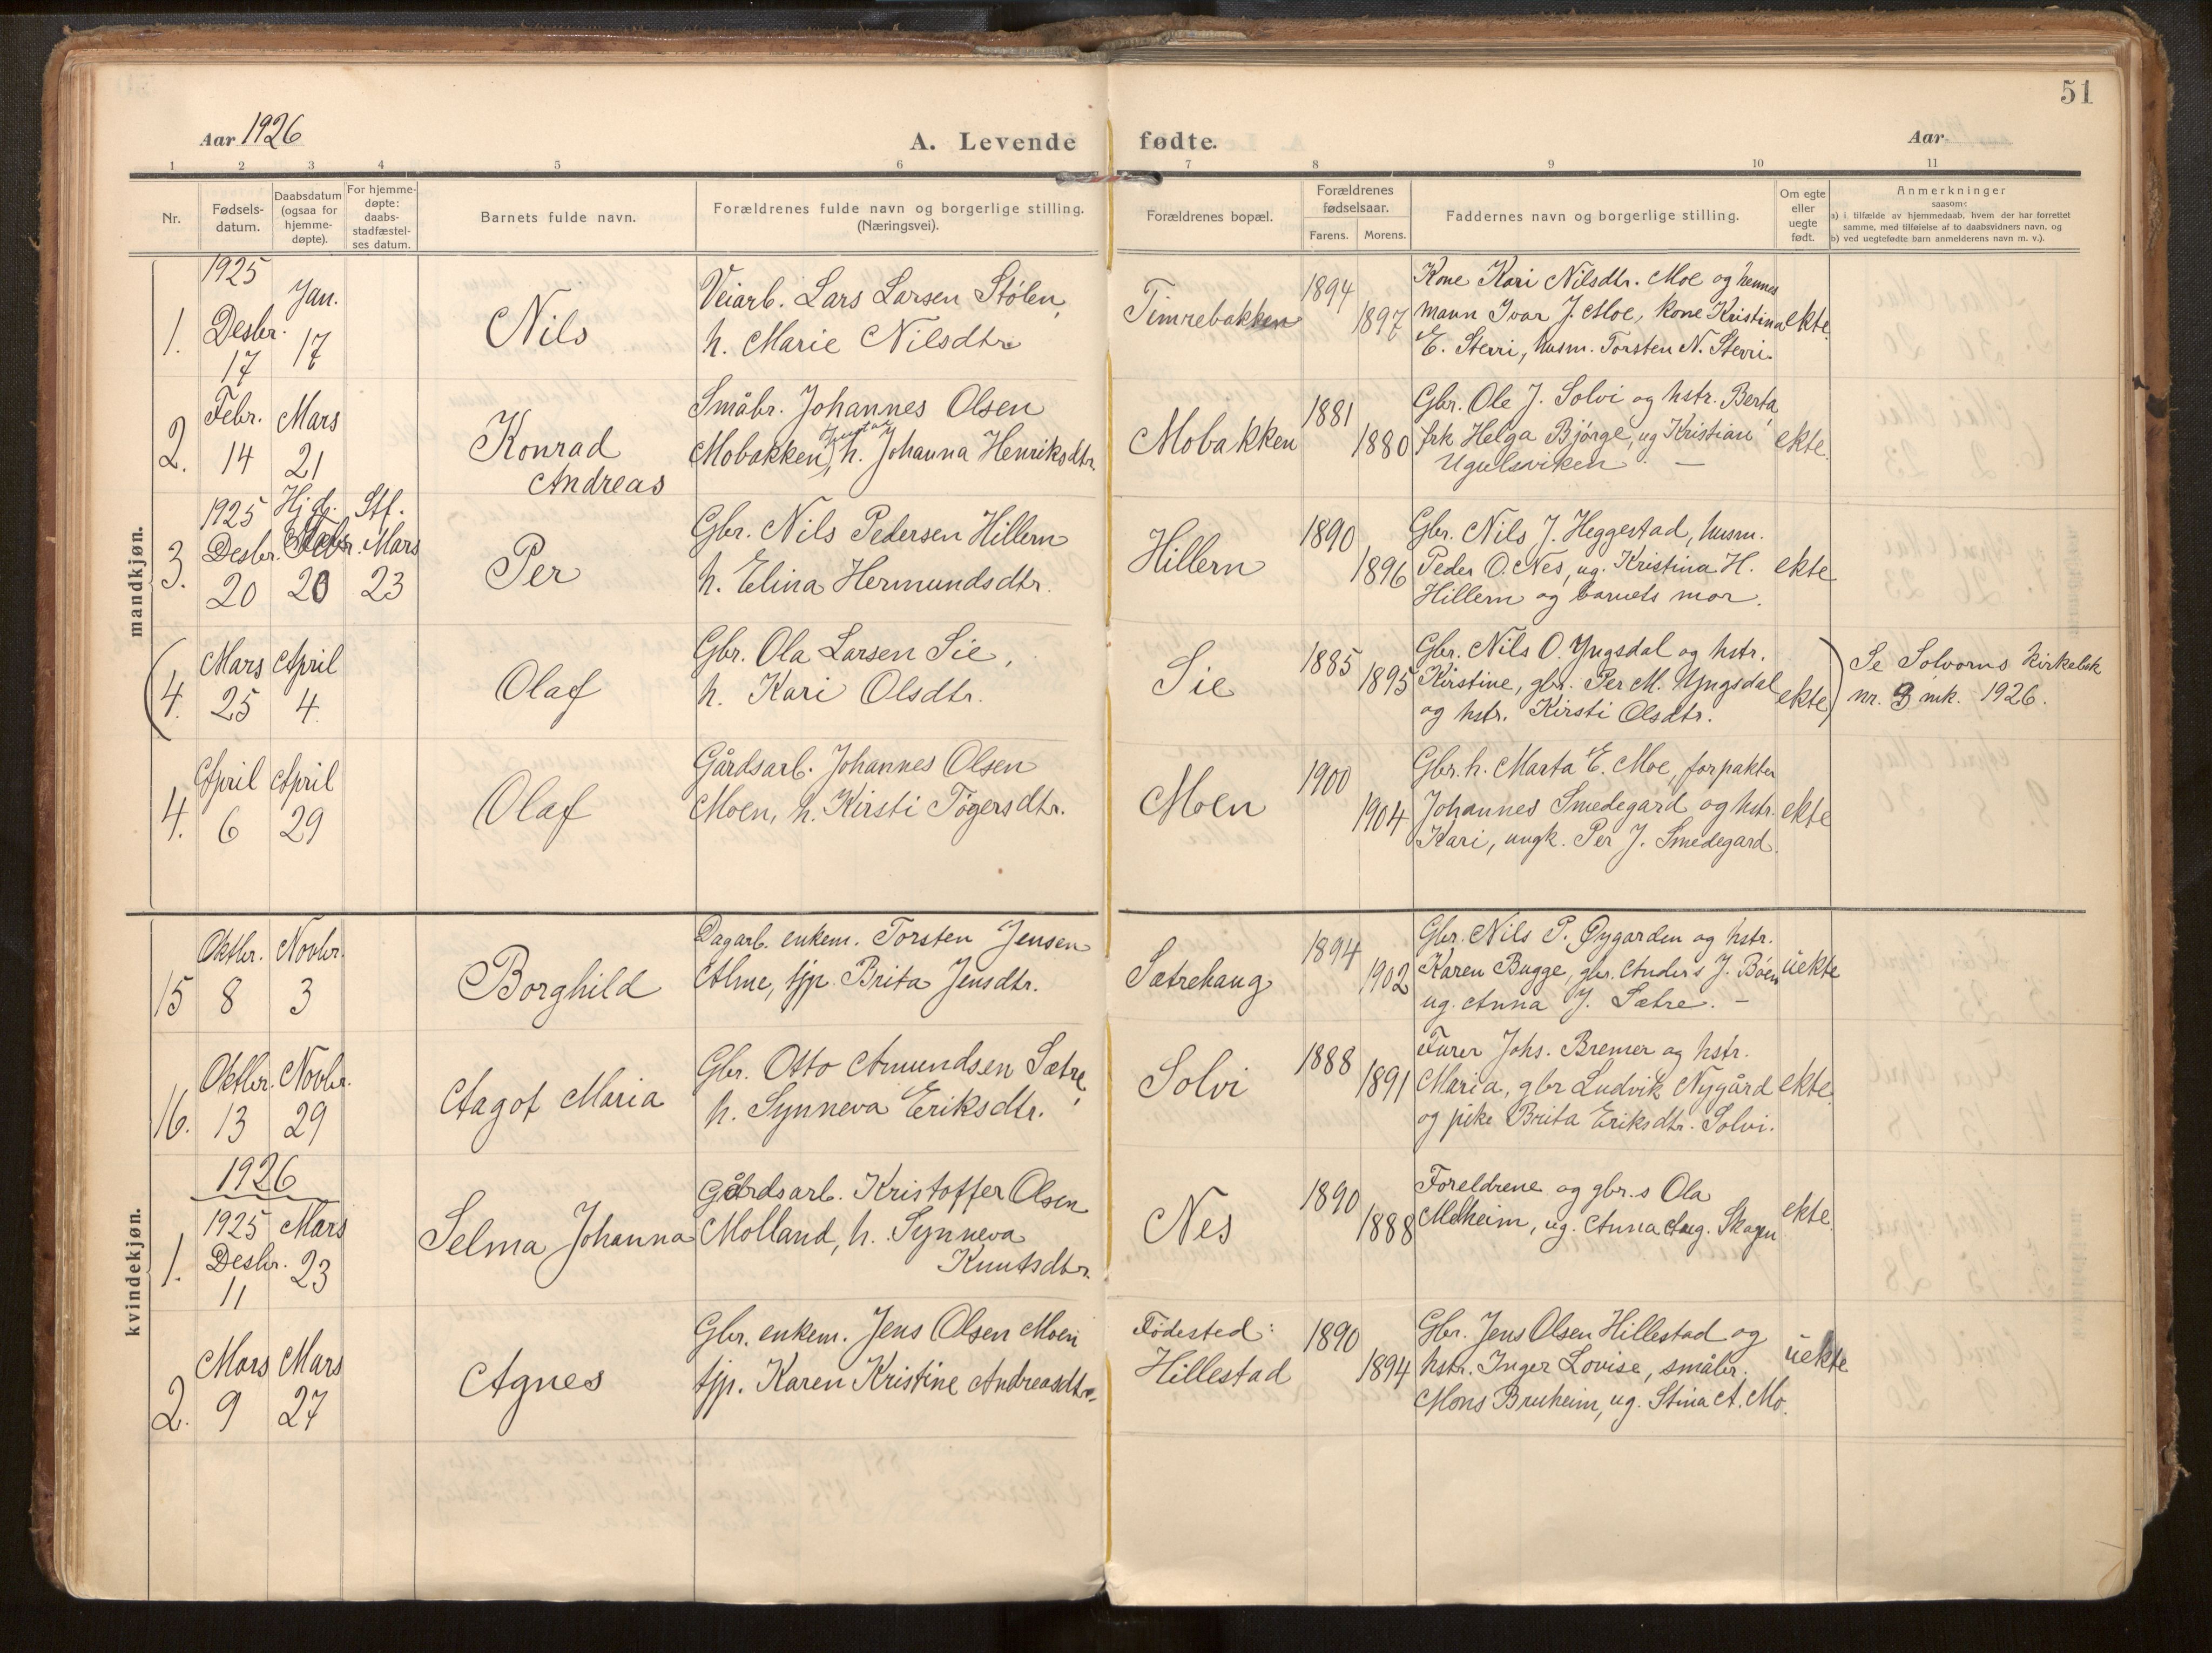 51
Aar 1926
A. Levende fødte.
Aar
1 2 3 4 5 6 7 8 9 10 11
Nr.
Fødsels-
datum.
Daabsdatum
(ogsaa for
hjemme-
døpte).
For hjemme-
døpte:
daabs-
stadfæstel-
ses datum.
Barnets fulde navn.
Forældrenes fulde navn og borgerlige stilling.
(Næringsvei).
Forældrenes bopæl.
Forældrenes
fødselsaar.
Farens. Morens.
Faddernes navn og borgerlige stilling.
Om egte
eller
uegte
født.
Anmerkninger
saasom:
a) i tilfælde av hjemmedaab, hvem der har forrettet
samme, med tilføielse af to daabsvidners navn, og
b) ved uegtefødte barn anmelderens navn m. v.).
mandkjøn.
1.
1925
Desbr.
17
Jan.
17
Nils
Veiarb. Lars Larsen Stølen,
h. Marie Nilsdtr.
Timrebakken
1894
1897
Kone Kari Nilsdtr. Moe og hennes
mann Ivar J. Moe, kone Kristina
E. Sterri, husm. Torsten N. Sterri.
ekte.
2.
Febr.
14
Mars
21
Konrad
Andreas
Småbr. Johannes Olsen
Mobakken, h. Johanna Henriksdtr.
Mobakken
1881
1880
Gbr. Ole J. Solvi og hstr. Berta,
frk Helga Bjørge, ug Kristian
Ugulsviken. —
ekte.
3.
1925
Desbr.
20
Hjd.
Febr.
20
Stf.
Mars
23
Per
Gbr. Nils Pedersen Hillern
h. Elina Hermundsdtr.
Hillern
1890
1896
Gbr. Nils J. Heggestad, husm.
Peder O. Nes, ug. Kristina H.
Hillern og barnets mor.
ekte
(4.
Mars
25
April
4.
Olaf
Gbr. Ola Larsen Sie,
h. Kari Olsdtr.
Sie
1885
1895
Gbr. Nils O. Yngsdal og hstr.
Kirstine, gbr. Per M. Yngsdal
og hstr. Kirsti Olsdtr.
ekte)
Se Solvorns kirkebok
nr. 3 mk. 1926.
4.
April
6
April
29
Olaf
Gårdsarb. Johannes Olsen
Moen, h. Kirsti Tøgersdtr.
Moen
1900
1904
Gbr. h. Marta E. Moe, forpakter
Johannes Smedegard og hstr.
Kari, ungk. Per J. Smedegard.
ekte
kvindekjøn.
15
Oktbr.
8
Novbr.
3
Borghild
Dagarb. enkem. Torsten Jensen
Alme, tjp. Brita Jensdtr.
Sætrehaug
1894
1902
Gbr. Nils P. Øygarden og hstr.
Karen Bugge, gbr. Anders J. Bøen
ug. Anna J. Sætre. —
uekte
16.
Oktbr.
13
Novbr.
29
Aagot Maria
Gbr. Otto Amundsen Sætre,
h. Synneva Eriksdtr.
Solvi
1888
1891
Furer Johs. Bremer og hstr.
Maria, gbr Ludvik Nygård
og pike Brita Eriksdtr. Solvi.
ekte.
1926
1.
1925
Desbr.
11
Mars
23
Selma Johanna
Gårdsarb. Kristoffer Olsen
Molland, h. Synneva
Knutsdtr.
Nes
1890
1888
Foreldrene og gbr.s Ola
Melheim, ug. Anna Aug. Skagen
ekte.
2.
Mars
9
Mars
27
Agnes
Gbr. enkem. Jens Olsen Moen
tjp. Karen Kristine Andreasdtr.
Fødested:
Hillestad
1890
1894
Gbr. Jens Olsen Hillestad og
hstr. Inger Lovise, småbr.
Mons Bruheim, ug. Stina A. Mo.
uekte